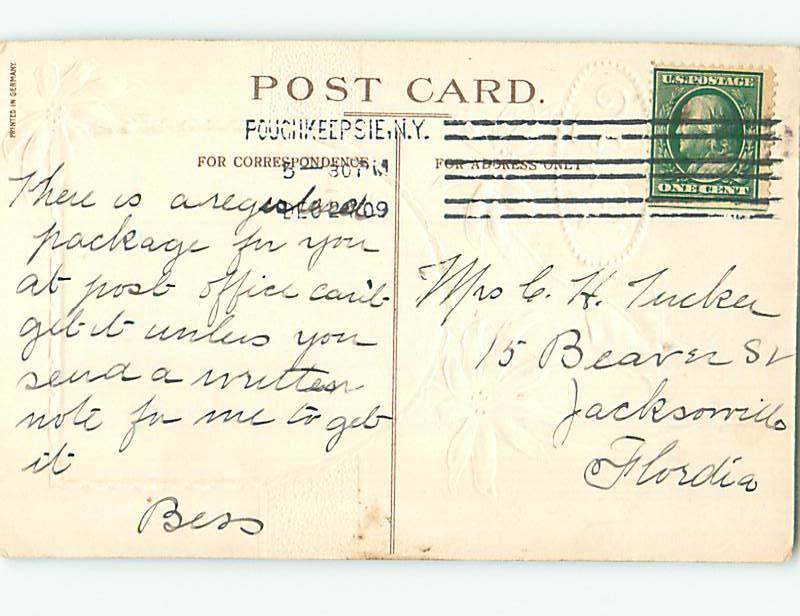 PRINTED IN GERMANY.
POST CARD.
U.S. POSTAGE
ONE CENT
POUGHKEEPSIE, N.Y.
5 - 30 P M
DEC 24 '09
FOR CORRESPONDENCE
FOR ADDRESS ONLY
There is a registered
package for you
at post office can't
get it unless you
send a written
note for me to get
it
Bess
Mrs C. H. Tucker
15 Beaver St
Jacksonville
Flordia